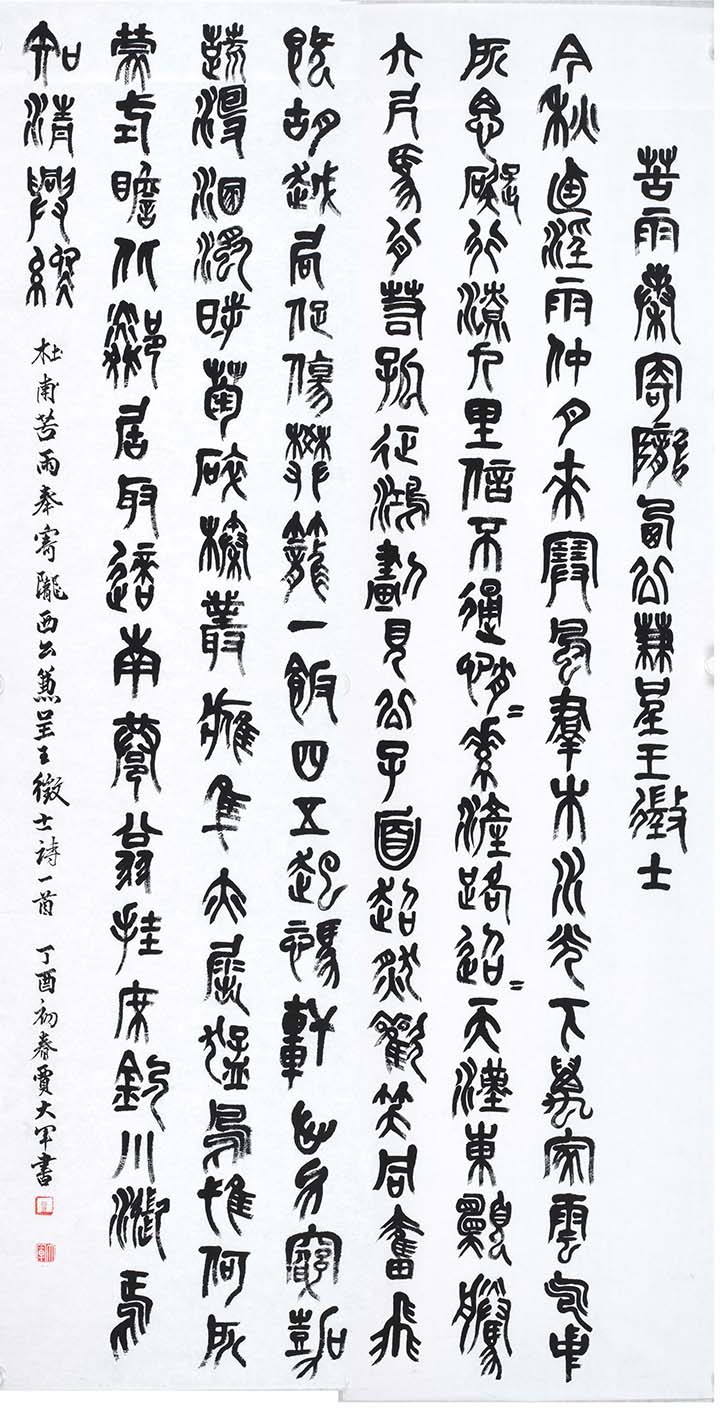 苦雨奉寄隴西公兼呈王徵士
今秋乃淫雨仲月來寒風羣木水光下萬家雲气中
所思礙行潦九里信不通悄=素滻路迢=天漢東願騰
六尺馬背若孤征鴻劃見公子面超然歡笑同奮飛
既胡越局促傷樊籠一飯四五起馮軒心力窮嘉
蔬沒溷濁時菊碎榛叢鷹隼亦屈猛烏鳶何所
蒙式瞻北鄰居取適南巷翁挂席釣川漲焉
知清興終
杜甫苦雨奉寄隴西公兼呈王徵士詩一首 丁酉初春賈大軍書